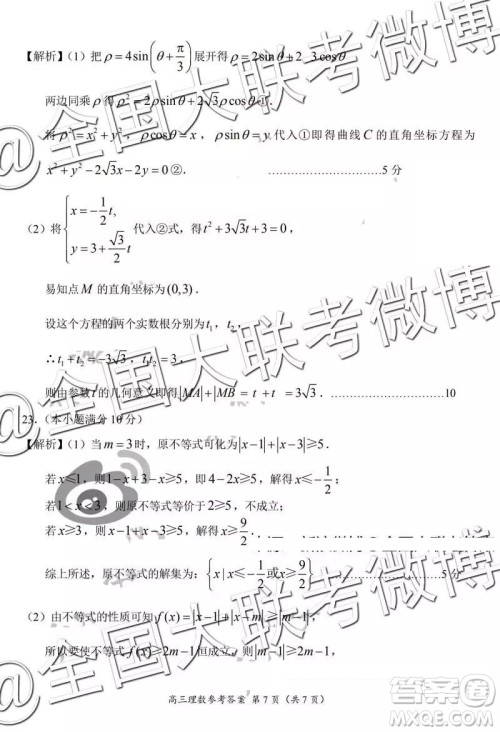 【解析】(1) 把 ρ=4sin(θ+π/3) 展开得 ρ=2sinθ+2√3cosθ
两边同乘 ρ 得 ρ²=2ρsinθ+2√3ρcosθ①.
将 ρ²=x²+y², ρcosθ=x, ρsinθ=y 代入①即得曲线 C 的直角坐标方程为
x²+y²-2√3x-2y=0②. ..............................5分
(2) 将 { x=-1/2t, y=3+√3/2t 代入②式,得 t²+3√3t+3=0,
易知点 M 的直角坐标为 (0,3).
设这个方程的两个实数根分别为 t₁, t₂,
∴t₁+t₂=-3√3, t₁t₂=3,
则由参数 t 的几何意义即得 |MA|+|MB|= t + t =3√3. ..............................10
23.(本小题满分10分)
【解析】(1) 当 m=3 时,原不等式可化为 |x-1|+|x-3|≥5.
若 x≤1, 则 1-x+3-x≥5, 即 4-2x≥5, 解得 x≤-1/2;
若 1<x<3, 则原不等式等价于 2≥5, 不成立;
若 x≥3, 则 x-1+x-3≥5, 解得 x≥9/2.
综上所述,原不等式的解集为: {x|x≤-1/2或x≥9/2}. 5分
(2) 由不等式的性质可知 f(x)=|x-1|+|x-m|≥|m-1|,
所以要使不等式 f(x)≥2m-1 恒成立,
高三理数参考答案 第7页(共7页)
@全国大联考微博
@全国大联考微博
@全国大联考微博